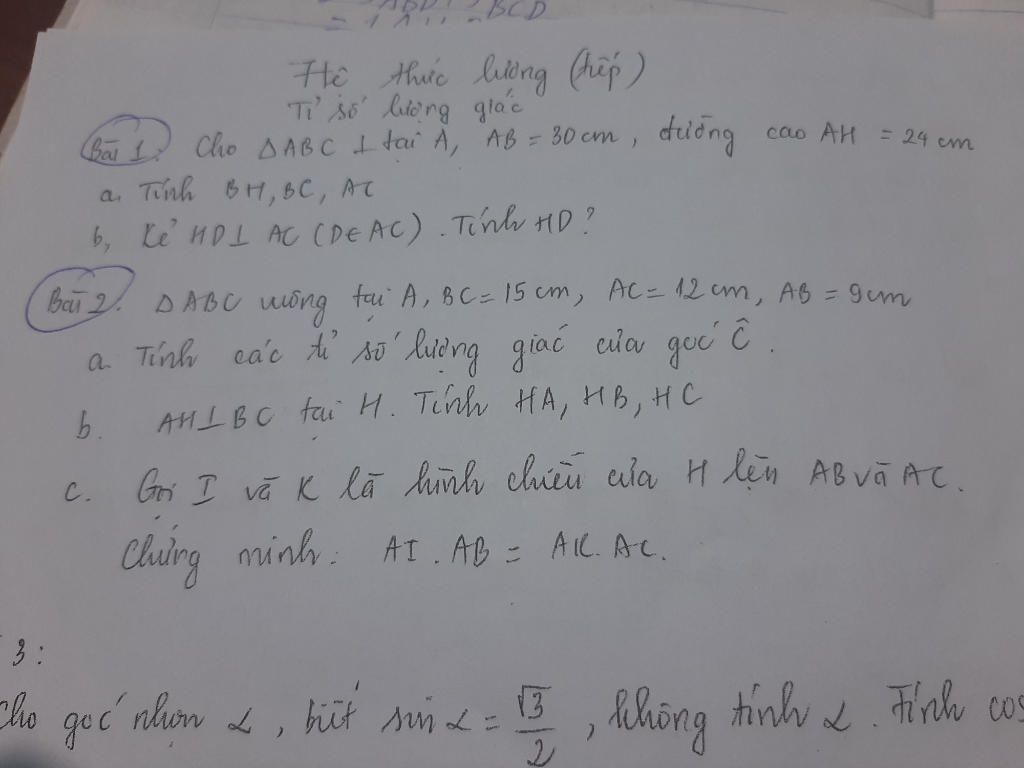 Hệ thức lượng (tiếp)
Tỉ số lượng giác
Bài 1. Cho △ABC ⊥ tại A, AB = 30 cm, đường cao AH = 24 cm
a. Tính BH, BC, AC
b, Kẻ HD ⊥ AC (D ∈ AC). Tính HD?
Bài 2. △ABC vuông tại A, BC = 15 cm, AC = 12 cm, AB = 9cm
a. Tính các tỉ số lượng giác của góc Ĉ.
b. AH ⊥ BC tại H. Tính HA, HB, HC
c. Gọi I và K là hình chiếu của H lên AB và AC.
Chứng minh: AI . AB = AK. AC.
3:
Cho góc nhọn α, biết sin α = √3/2, không tính α. Tính cos